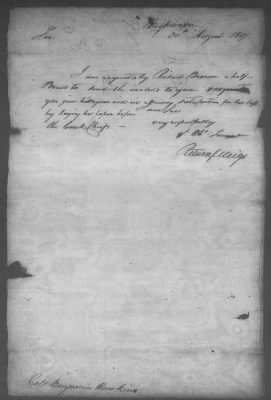 Hiwassee
30th August 1809
Sir
I am requested by Robert Brown a half
Breed to send the inclosed to you
you give him your aid in Affording satisfaction for his loss
by laying his before
the Creek Chiefs —
I am Sir
very respectfully
yr Obt. Servt
Return J Meigs
Colo Benjamin Hawkins